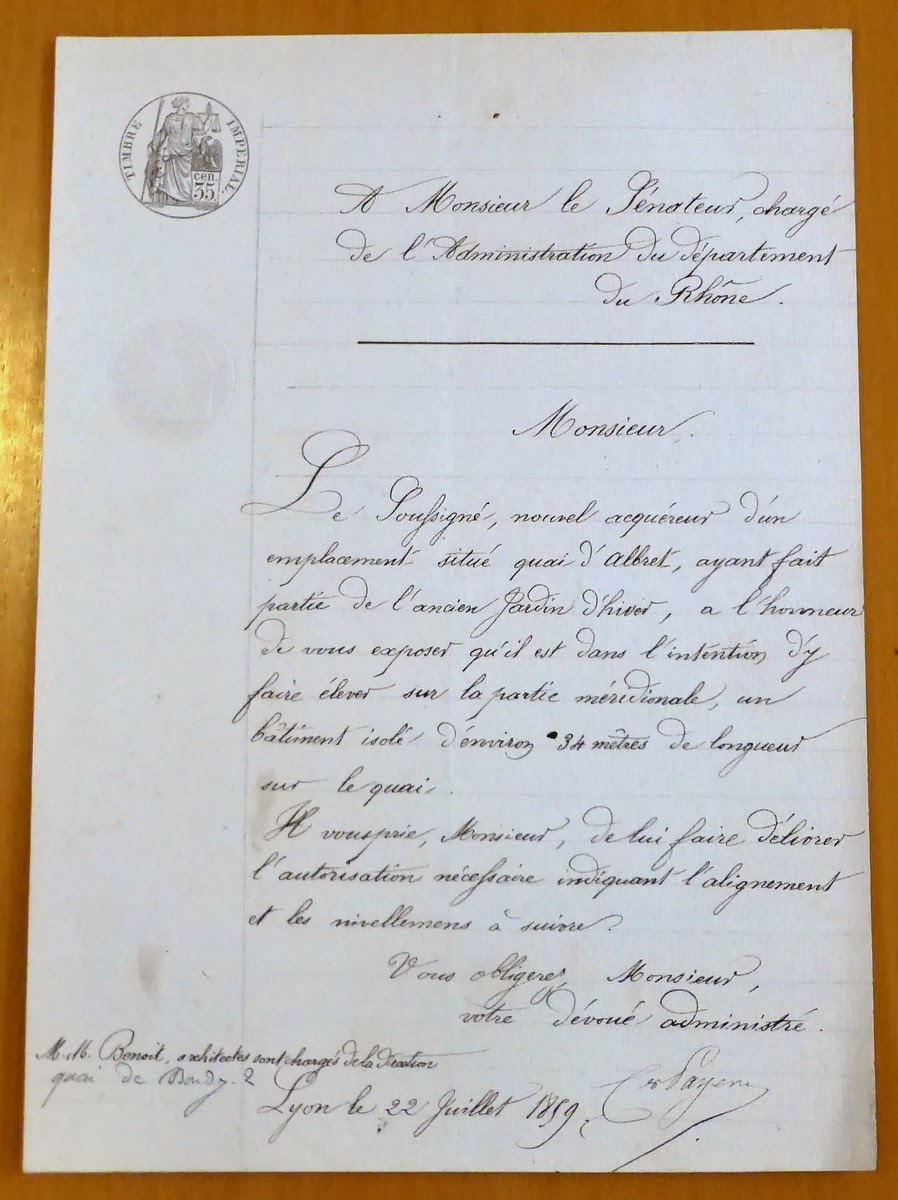 TIMBRE IMPERIAL
cen.
35
A Monsieur le Sénateur, chargé
de l'Administration du département
du Rhône.
Monsieur.
Le Soussigné, nouvel acquéreur d'un
emplacement situé quai d'Albret, ayant fait
partie de l'ancien Jardin d'hiver, a l'honneur
de vous exposer qu'il est dans l'intention d'y
faire élever sur la partie méridionale, un
bâtiment isolé d'environ 34 mètres de longueur
sur le quai.
Il vous prie, Monsieur, de lui faire délivrer
l'autorisation nécessaire indiquant l'alignement
et les nivellemens à suivre.
Vous obligerez, Monsieur,
votre dévoué administré.
M.M. Benoit, architectes sont chargés de la direction
quai de Bondy. 2
Payen
Lyon le 22 Juillet 1859